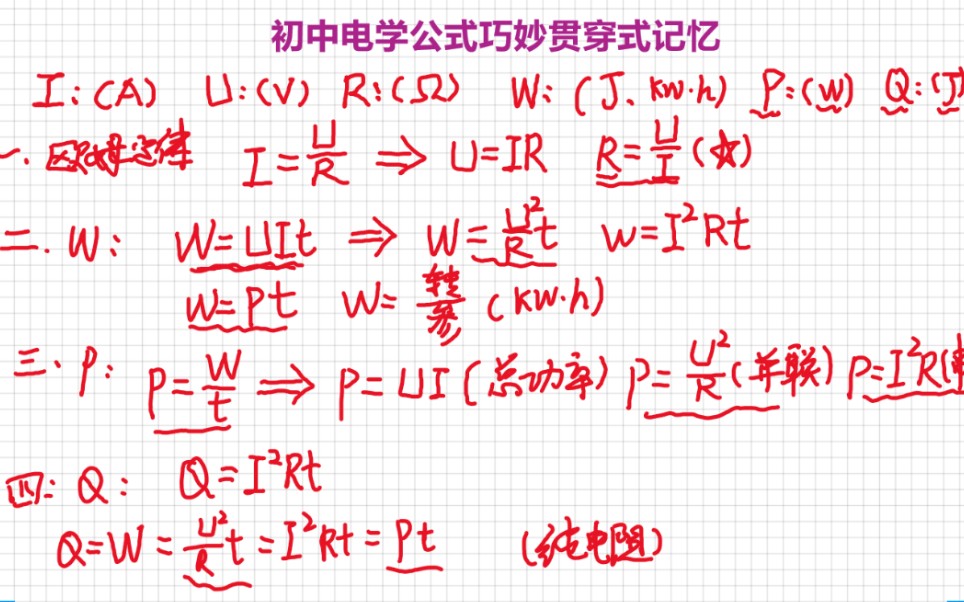 初中电学公式巧妙贯穿式记忆
I:(A) U:(V) R:(Ω) W:(J、KW·h) P:(W) Q:(J)
一、欧姆定律 I=U/R ⇒ U=IR R=U/I (☆)
二. W: W=UIt ⇒ W=U²/R t W=I²Rt
W=Pt W=转/参 (KW·h)
三、P: P=W/t ⇒ P=UI (总功率) P=U²/R (并联) P=I²R(串
四: Q: Q=I²Rt
Q=W=U²/R t=I²Rt=Pt (纯电阻)